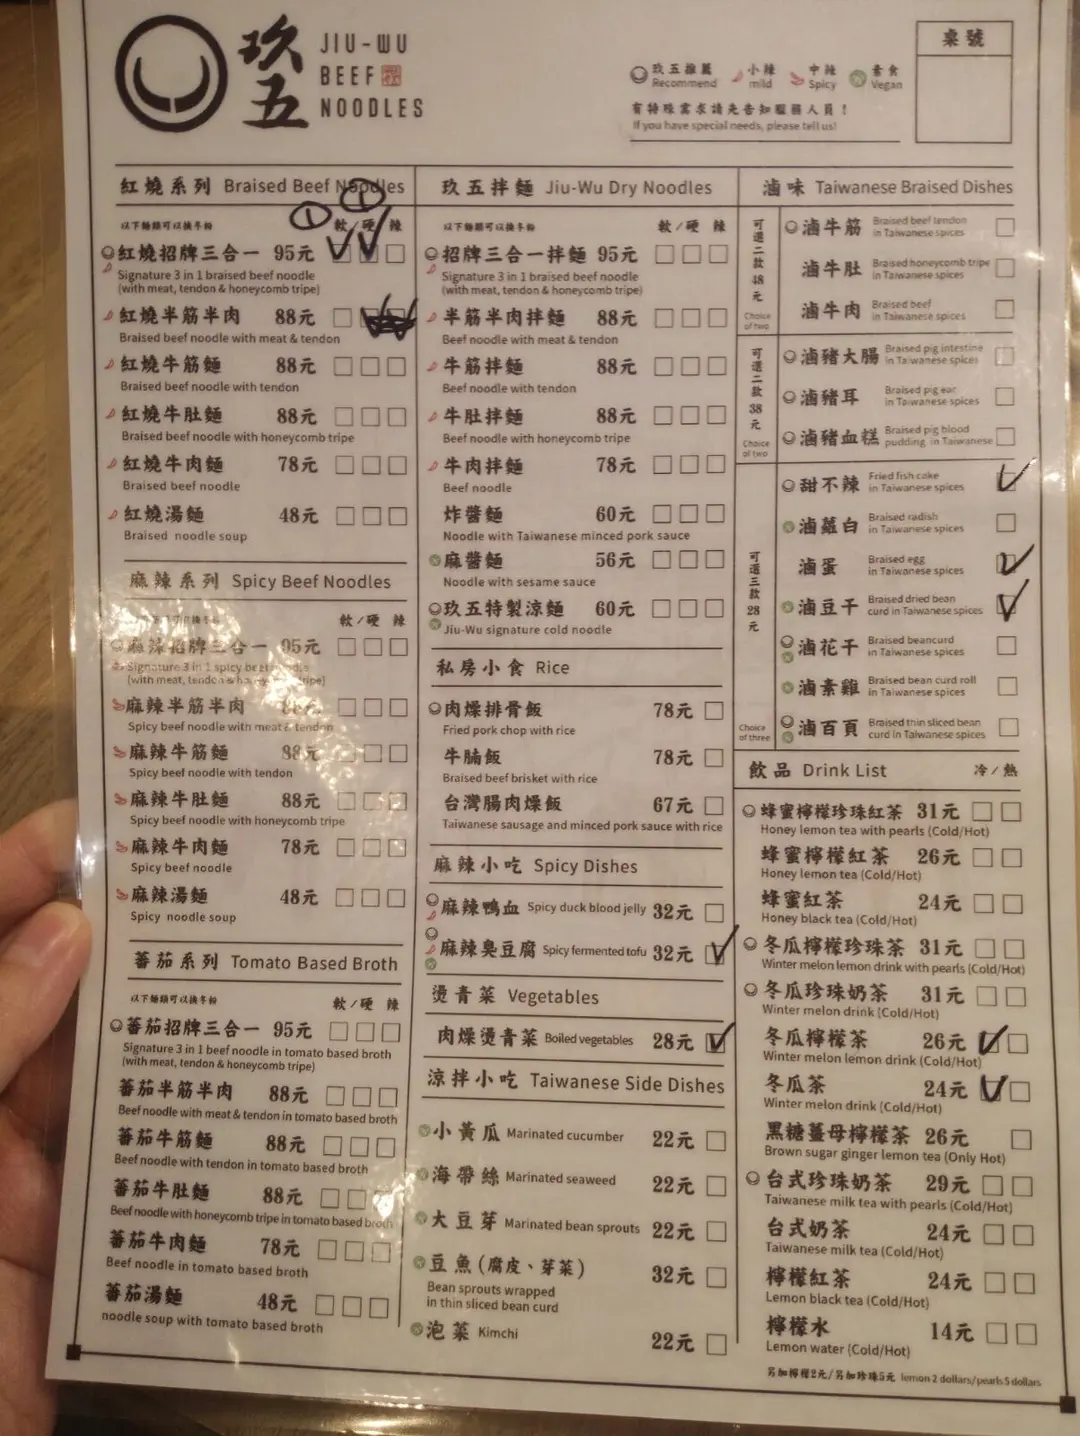 玖五
JIU-WU
BEEF
NOODLES
玖五推薦 Recommend
小辣 mild
中辣 Spicy
素食 Vegan
有特殊需求請先告知服務人員！
If you have special needs, please tell us!
桌號
紅燒系列 Braised Beef Noodles
① ①
以下麵類可以換冬粉 軟/硬 辣
紅燒招牌三合一 95元
Signature 3 in 1 braised beef noodle
(with meat, tendon & honeycomb tripe)
紅燒半筋半肉 88元
Braised beef noodle with meat & tendon
紅燒牛筋麵 88元
Braised beef noodle with tendon
紅燒牛肚麵 88元
Braised beef noodle with honeycomb tripe
紅燒牛肉麵 78元
Braised beef noodle
紅燒湯麵 48元
Braised noodle soup
麻辣系列 Spicy Beef Noodles
軟/硬 辣
麻辣招牌三合一 95元
Signature 3 in 1 spicy beef noodle
(with meat, tendon & honeycomb tripe)
麻辣半筋半肉
Spicy beef noodle with meat & tendon
麻辣牛筋麵 88元
Spicy beef noodle with tendon
麻辣牛肚麵 88元
Spicy beef noodle with honeycomb tripe
麻辣牛肉麵 78元
Spicy beef noodle
麻辣湯麵 48元
Spicy noodle soup
蕃茄系列 Tomato Based Broth
以下麵類可以換冬粉 軟/硬 辣
蕃茄招牌三合一 95元
Signature 3 in 1 beef noodle in tomato based broth
(with meat, tendon & honeycomb tripe)
蕃茄半筋半肉 88元
Beef noodle with meat & tendon in tomato based broth
蕃茄牛筋麵 88元
Beef noodle with tendon in tomato based broth
蕃茄牛肚麵 88元
Beef noodle with honeycomb tripe in tomato based broth
蕃茄牛肉麵 78元
Beef noodle in tomato based broth
蕃茄湯麵 48元
noodle soup with tomato based broth
玖五拌麵 Jiu-Wu Dry Noodles
以下麵類可以換冬粉 軟/硬 辣
招牌三合一拌麵 95元
Signature 3 in 1 braised beef noodle
(with meat, tendon & honeycomb tripe)
半筋半肉拌麵 88元
Beef noodle with meat & tendon
牛筋拌麵 88元
Beef noodle with tendon
牛肚拌麵 88元
Beef noodle with honeycomb tripe
牛肉拌麵 78元
Beef noodle
炸醬麵 60元
Noodle with Taiwanese minced pork sauce
麻醬麵 56元
Noodle with sesame sauce
玖五特製涼麵 60元
Jiu-Wu signature cold noodle
私房小食 Rice
肉燥排骨飯 78元
Fried pork chop with rice
牛腩飯 78元
Braised beef brisket with rice
台灣腸肉燥飯 67元
Taiwanese sausage and minced pork sauce with rice
麻辣小吃 Spicy Dishes
麻辣鴨血 Spicy duck blood jelly 32元
麻辣臭豆腐 Spicy fermented tofu 32元
燙青菜 Vegetables
肉燥燙青菜 Boiled vegetables 28元
涼拌小吃 Taiwanese Side Dishes
小黃瓜 Marinated cucumber 22元
海帶絲 Marinated seaweed 22元
大豆芽 Marinated bean sprouts 22元
豆魚(腐皮、芽菜) 32元
Bean sprouts wrapped
in thin sliced bean curd
泡菜 Kimchi 22元
滷味 Taiwanese Braised Dishes
可選二款48元
Choice of two
滷牛筋 Braised beef tendon in Taiwanese spices
滷牛肚 Braised honeycomb tripe in Taiwanese spices
滷牛肉 Braised beef in Taiwanese spices
可選二款38元
Choice of two
滷豬大腸 Braised pig intestine in Taiwanese spices
滷豬耳 Braised pig ear in Taiwanese spices
滷豬血糕 Braised pig blood pudding in Taiwanese
可選三款28元
Choice of three
甜不辣 Fried fish cake in Taiwanese spices
滷蘿白 Braised radish in Taiwanese spices
滷蛋 Braised egg in Taiwanese spices
滷豆干 Braised dried bean curd in Taiwanese spices
滷花干 Braised beancurd in Taiwanese spices
滷素雞 Braised bean curd roll in Taiwanese spices
滷百頁 Braised thin sliced bean curd in Taiwanese spices
飲品 Drink List 冷/熱
蜂蜜檸檬珍珠紅茶 31元
Honey lemon tea with pearls (Cold/Hot)
蜂蜜檸檬紅茶 26元
Honey lemon tea (Cold/Hot)
蜂蜜紅茶 24元
Honey black tea (Cold/Hot)
冬瓜檸檬珍珠茶 31元
Winter melon lemon drink with pearls (Cold/Hot)
冬瓜珍珠奶茶 31元
Winter melon drink (Cold/Hot)
冬瓜檸檬茶 26元
Winter melon lemon drink (Cold/Hot)
冬瓜茶 24元
Winter melon drink (Cold/Hot)
黑糖薑母檸檬茶 26元
Brown sugar ginger lemon tea (Only Hot)
台式珍珠奶茶 29元
Taiwanese milk tea with pearls (Cold/Hot)
台式奶茶 24元
Taiwanese milk tea (Cold/Hot)
檸檬紅茶 24元
Lemon black tea (Cold/Hot)
檸檬水 14元
Lemon water (Cold/Hot)
另加檸檬2元/另加珍珠5元 lemon 2 dollars/pearls 5 dollars